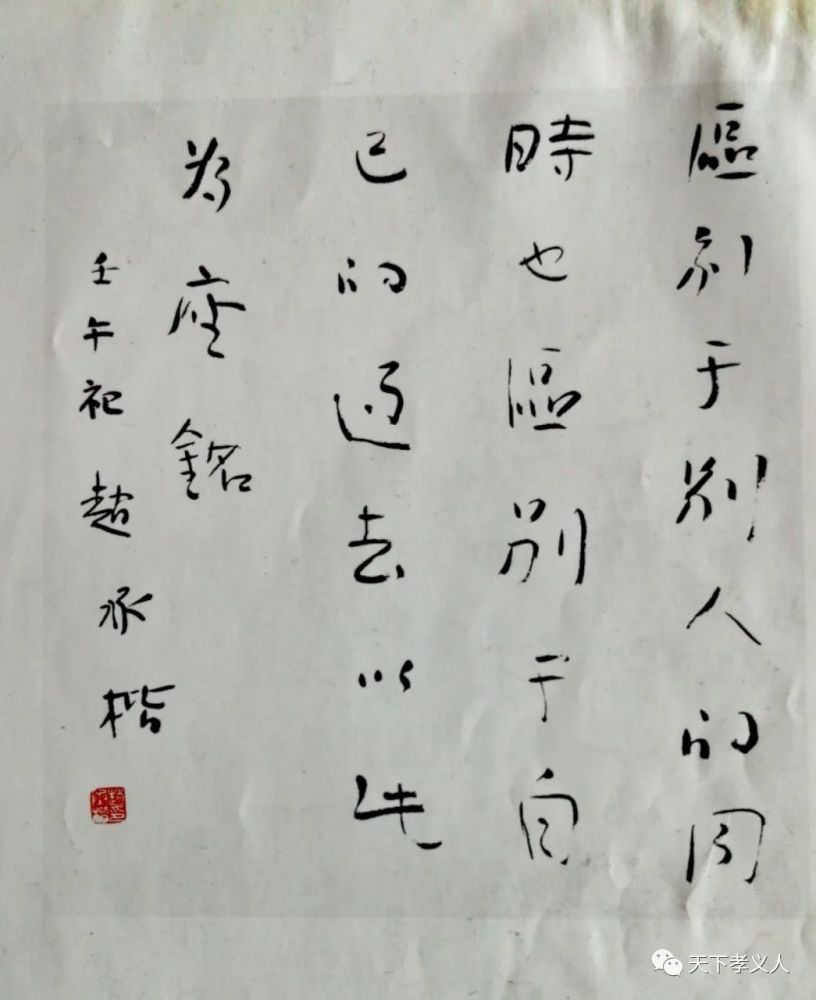 區别于别人的同
時也區别于自
己的過去以此
為座銘
壬午祀趙承楷
天下孝义人